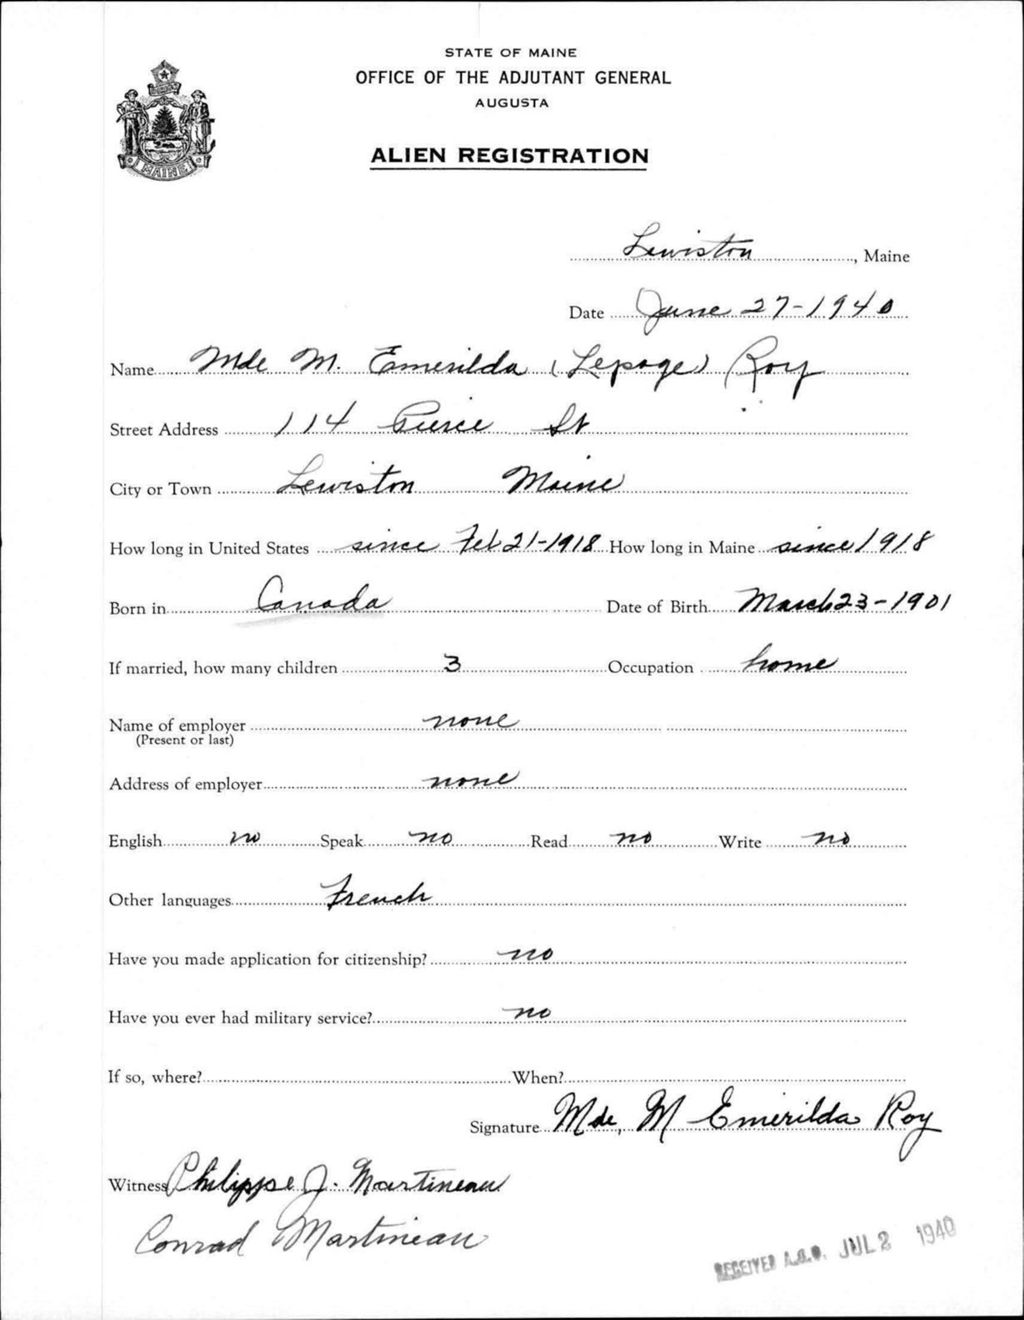 STATE OF MAINE
OFFICE OF THE ADJUTANT GENERAL
AUGUSTA
ALIEN REGISTRATION
MAINE
Lewiston, Maine
Date June 27-1940
Name Mde M. Emerilda (Lepage) Roy
Street Address 114 Pierce St
City or Town Lewiston Maine
How long in United States since Feb 21-1918 How long in Maine since 1918
Born in Canada Date of Birth March 23-1901
If married, how many children 3 Occupation home
Name of employer none
(Present or last)
Address of employer none
English no Speak no Read no Write no
Other languages French
Have you made application for citizenship? no
Have you ever had military service? no
If so, where? When?
Signature Mde, M Emerilda Roy
Witness Philippe J. Martineau
Conrad Martineau
RECEIVED A.G.O. JUL 2 1940